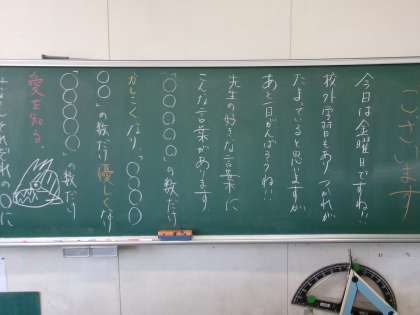 ございます
今日は金曜日ですね!!
校外学習もあり つかれが
たまっていると思いますが
あと一日がんばろうね!!
先生の好きな言葉に
こんな言葉があります
「○○○○○」の数だけ
かしこくなり、「○○○○
○○」の数だけ優しくなり
「○○○○○」の数だけ
愛を知る。
それぞれの○に